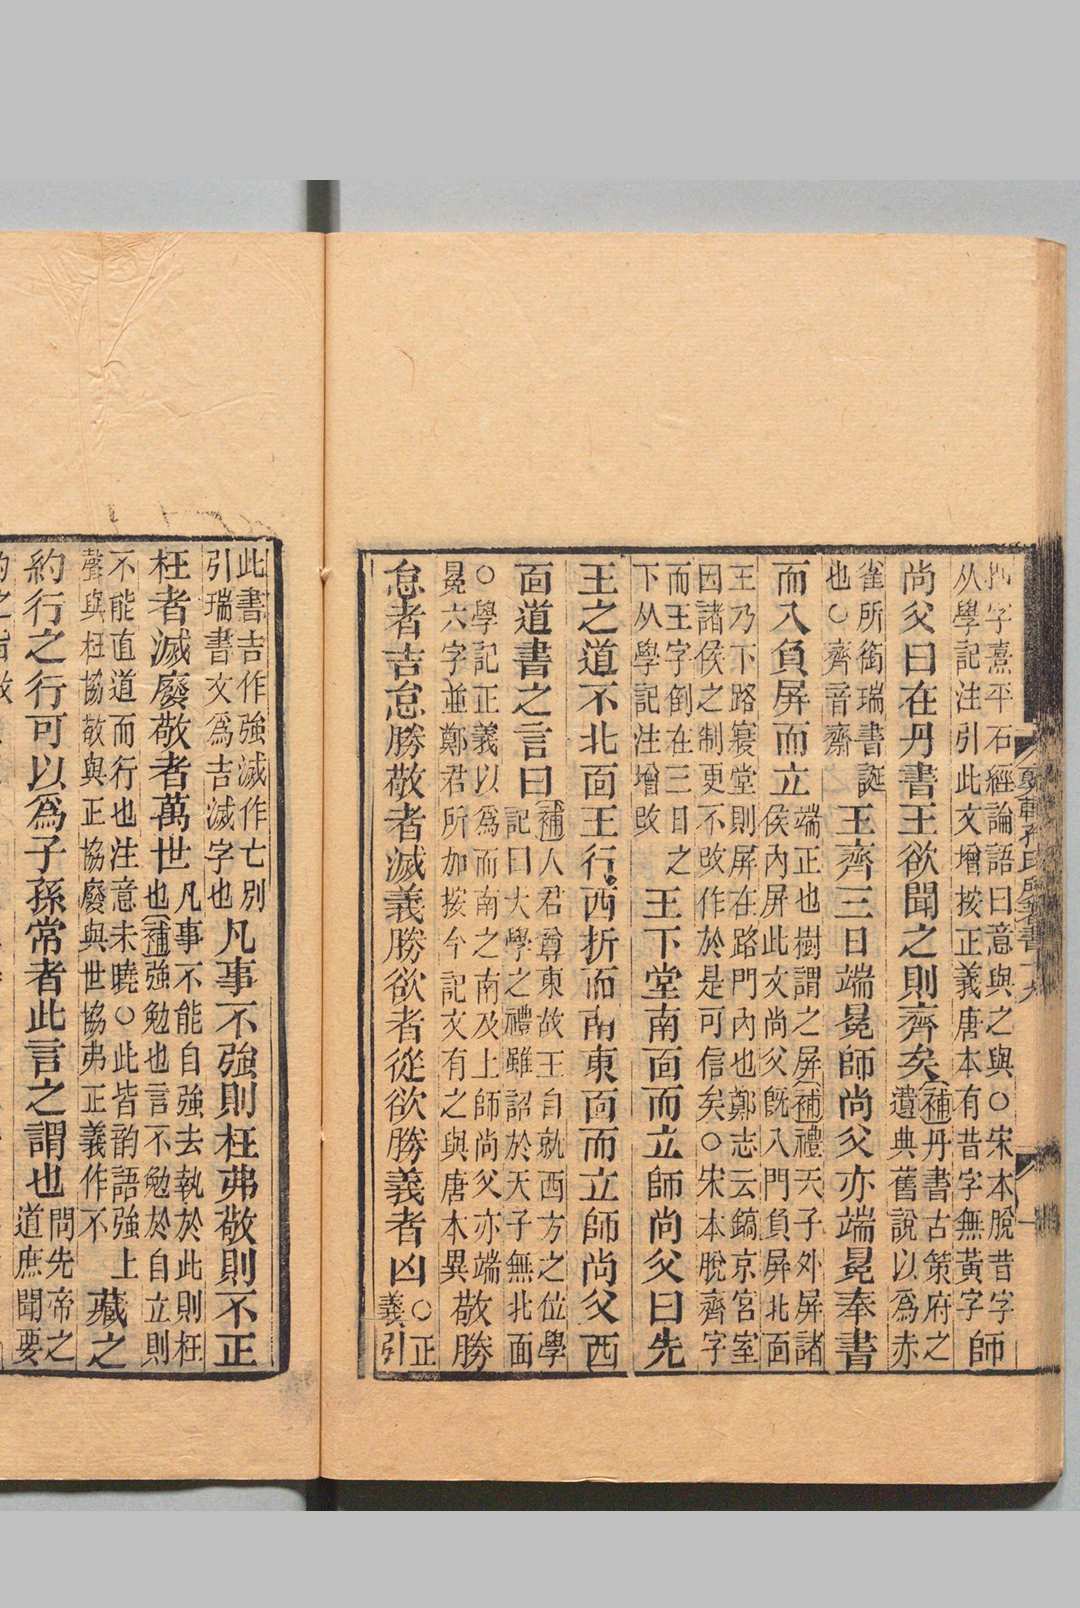 字熹平石經論語曰意與之與○宋本脫昔字
从學記注引此文增按正義唐本有昔字無黃字
師
尚父曰在丹書王欲聞之則齊矣
補丹書古策府之
遺典舊說以爲赤
雀所銜瑞書誕
也○齊音齋
王齊三日端冕師尚父亦端冕奉書
而入負屏而立
端正也樹謂之屏補禮天子外屏諸
侯內屏此文尚父旣入門負屏北面
王乃下路寢堂則屏在路門內也鄭志云鎬京宮室
因諸侯之制更不攺作於是可信矣○宋本脫齊字
而王字倒在三日之
下从學記注增攺
王下堂南面而立師尚父曰先
王之道不北面王行西折而南東面而立師尚父西
面道書之言曰
補人君尊東故王自就西方之位學
記曰大學之禮雖詔於天子無北面
○學記正義以爲而南之南及上師尚父亦端
冕六字並鄭君所加按今記文有之與唐本異
敬勝
怠者吉怠勝敬者滅義勝欲者從欲勝義者凶
○正
義引
此書吉作強滅作亡別
引瑞書文爲吉滅字也
凡事不強則枉弗敬則不正
枉者滅廢敬者萬世
凡事不能自強去執於此則枉
也補強勉也言不勉於自立則
不能直道而行也注意未曉○此皆韵語強上
聲與枉協敬與正協廢與世協弗正義作不
藏之
約行之行可以爲子孫常者此言之謂也
問先帝之
道庶聞要